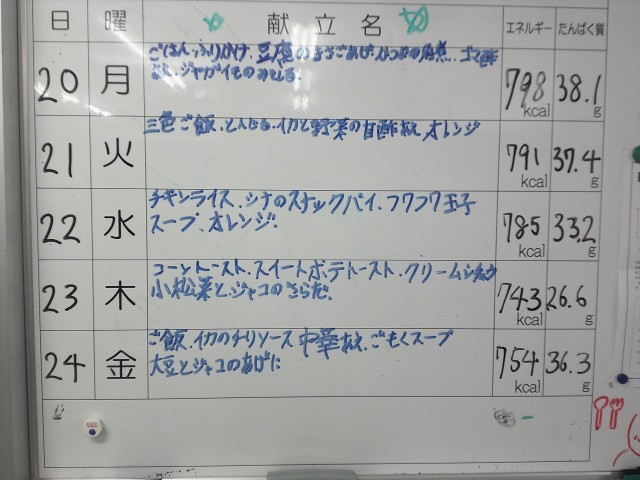 日 曜 献立名 エネルギー たんぱく質
20 月 ごはん、ふりかけ、豆座の 角煮、ゴマ酢 798 kcal 38.1 g
ジャガイモのみそしる
21 火 三色ご飯、とんじる、イカと野菜の甘酢あえ、オレンジ 791 kcal 37.4 g
22 水 チキンライス、シナのスナックパイ、フワフワ玉子 785 kcal 33.2 g
スープ、オレンジ
23 木 コーントースト、スイートポテトースト、クリームシチュウ 743 kcal 26.6 g
小松菜とジャコのさらだ
24 金 ご飯、イカのチリソース 中華あえ、ごもくスープ 754 kcal 36.3 g
大豆とジャコのあげに